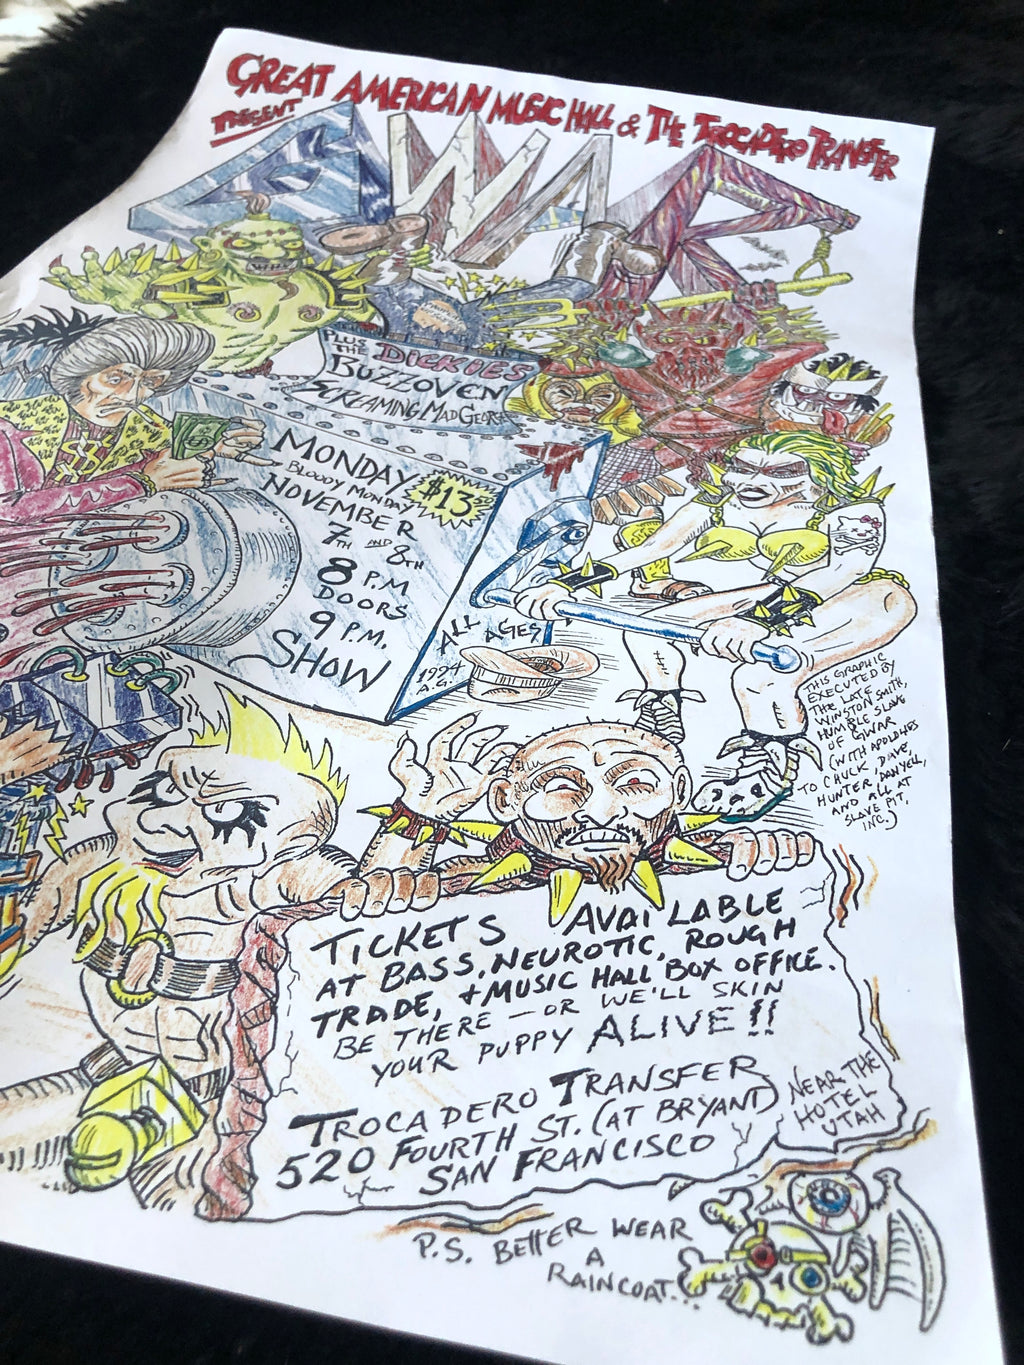 GREAT AMERICAN MUSIC HALL & THE TROCADERO TRANSFER
PRESENT
GWAR
PLUS THE DICKIES
BUZZOVEN
SCREAMING MAD GEORGE
MONDAY
BLOODY MONDAY
$13.50
NOVEMBER
7TH AND 8TH
8 P.M
DOORS
9 P.M.
SHOW
ALL AGES
1994
A.G.
THIS GRAPHIC
EXECUTED BY
THE LATE
WINSTON SMITH,
HUMBLE SLAVE
OF GWAR
(WITH APOLOGIES
TO CHUCK, DAVE,
HUNTER, DANYELL,
AND ALL AT
SLAVE PIT,
INC.)
TICKETS AVAILABLE
AT BASS, NEUROTIC, ROUGH
TRADE, + MUSIC HALL BOX OFFICE.
BE THERE — OR WE'LL SKIN
YOUR PUPPY ALIVE!!
TROCADERO TRANSFER
520 FOURTH ST. (AT BRYANT)
SAN FRANCISCO
NEAR THE
HOTEL
UTAH
P.S. BETTER WEAR
A
RAINCOAT...